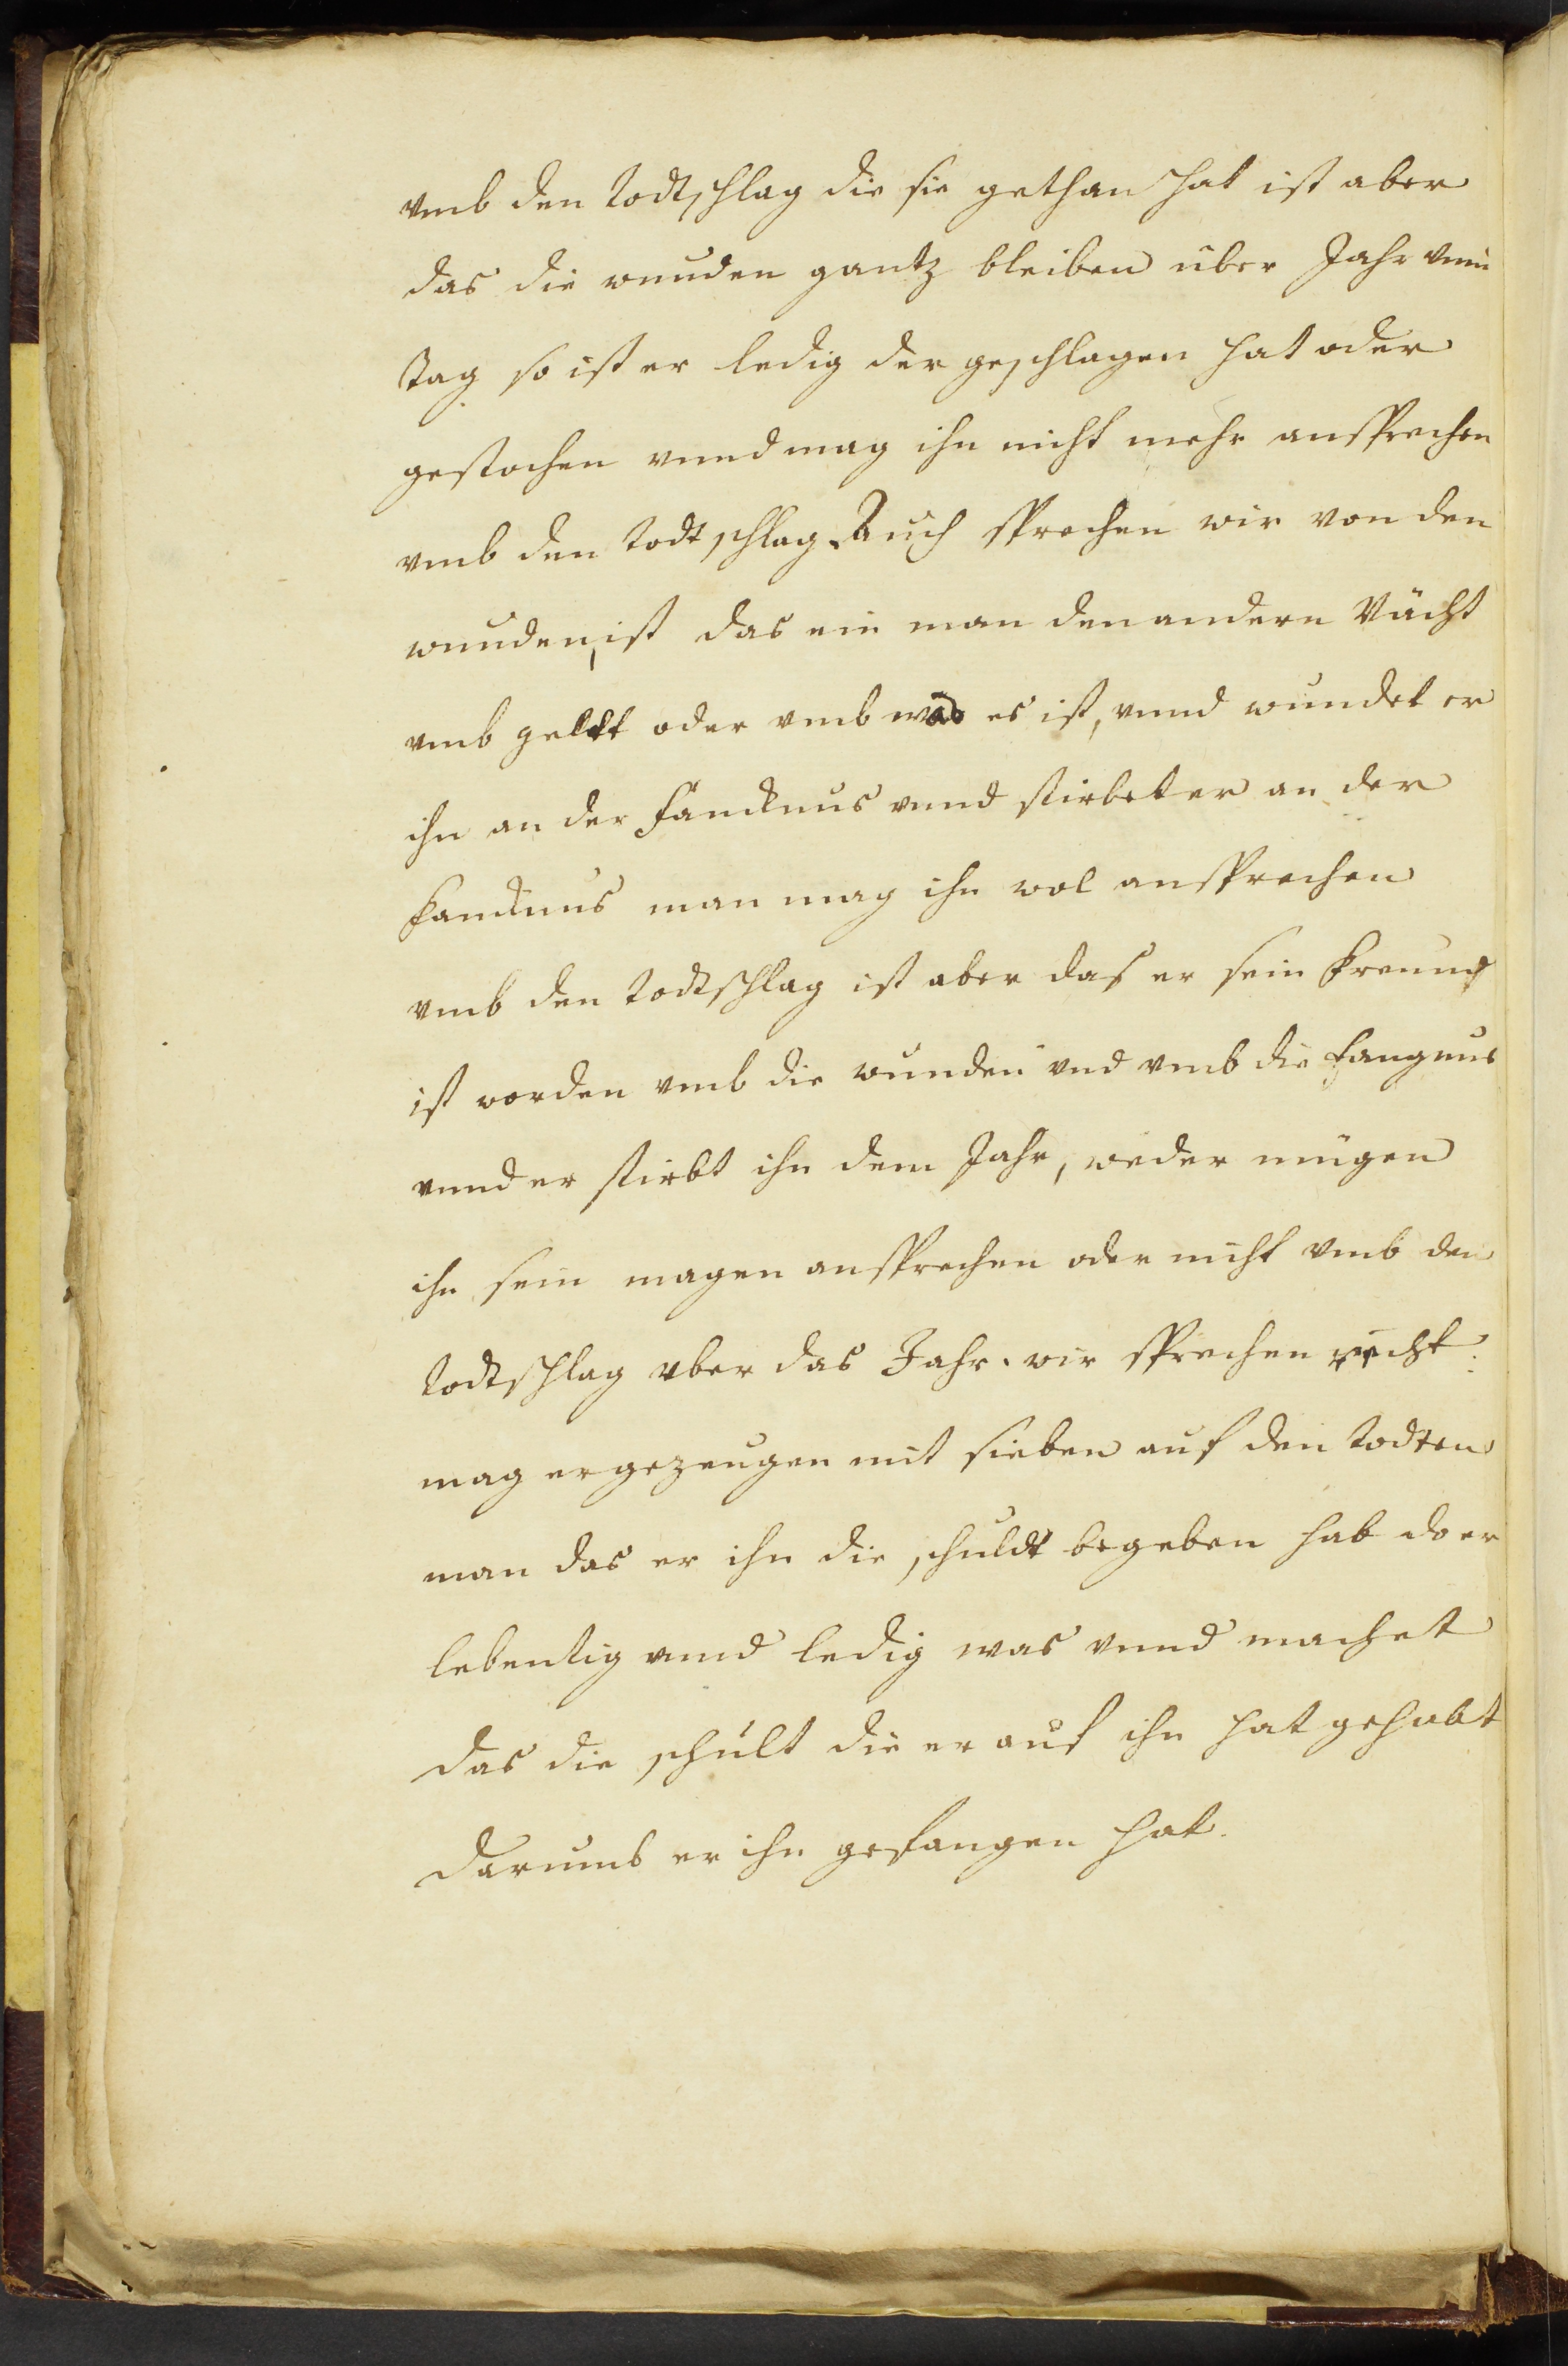 vmb den todtschlag die sie gethan hat ist aber
das die wunden gantz bleiben über Jahr vnn
tag so ist er ledig der geschlagen hat oder
gestochen vnnd mag ihn nicht mehr ansprechen
vmb den todtschlag. Auch sprechen wir von den
wunden, ist das ein man den andern Vächt
vmb geltt oder vmb was es ist, vnnd wundet er
ihn an der fäncknus vnnd stirbet er an der
fancknus man mag ihn wol ansprechen
vmb den todtschlag ist aber das er sein freund
ist worden vmb die wunden vnd vmb die fangnus
vnnd er stirbt ihn dem Jahr, weder mügen
ihn sein magen ansprechen oder nicht vmb den
todtschlag vber das Jahr. wir sprechen
mag er gezeugen mit sieben auf den todten
man das er ihn die schuldt begeben hab do er
lebentig vnnd ledig was vnnd machet
das die schült die er auf ihn hat gehabt
darumb er ihn gefangen hat.